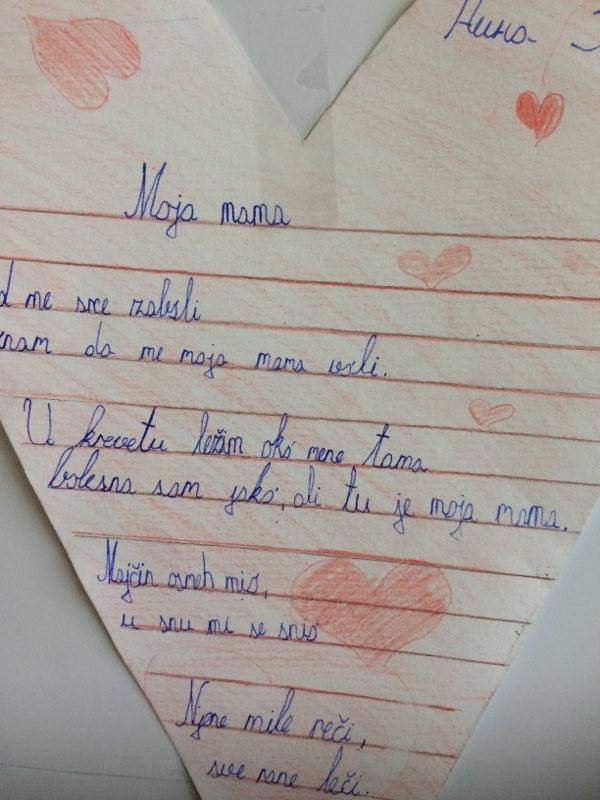 Нина
Moja mama
d me srce zaboli
nam da me moja mama voli.
U krevetu ležim oko mene tama
bolesna sam jako, ali tu je moja mama.
Majčin osmeh mio,
u snu mi se snio
Njene mile reči,
sve rane leči.